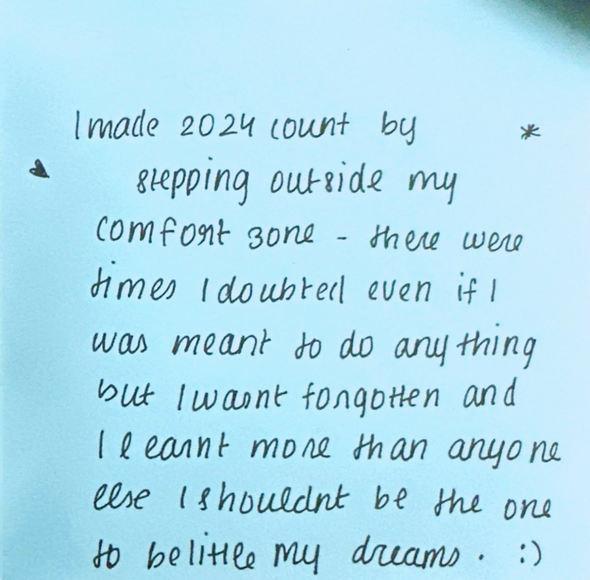 I made 2024 count by *
stepping outside my
comfort zone - there were
times I doubted even if I
was meant to do anything
but I wasnt forgotten and
I learnt more than anyone
else I shouldnt be the one
to belittle my dreams. :)